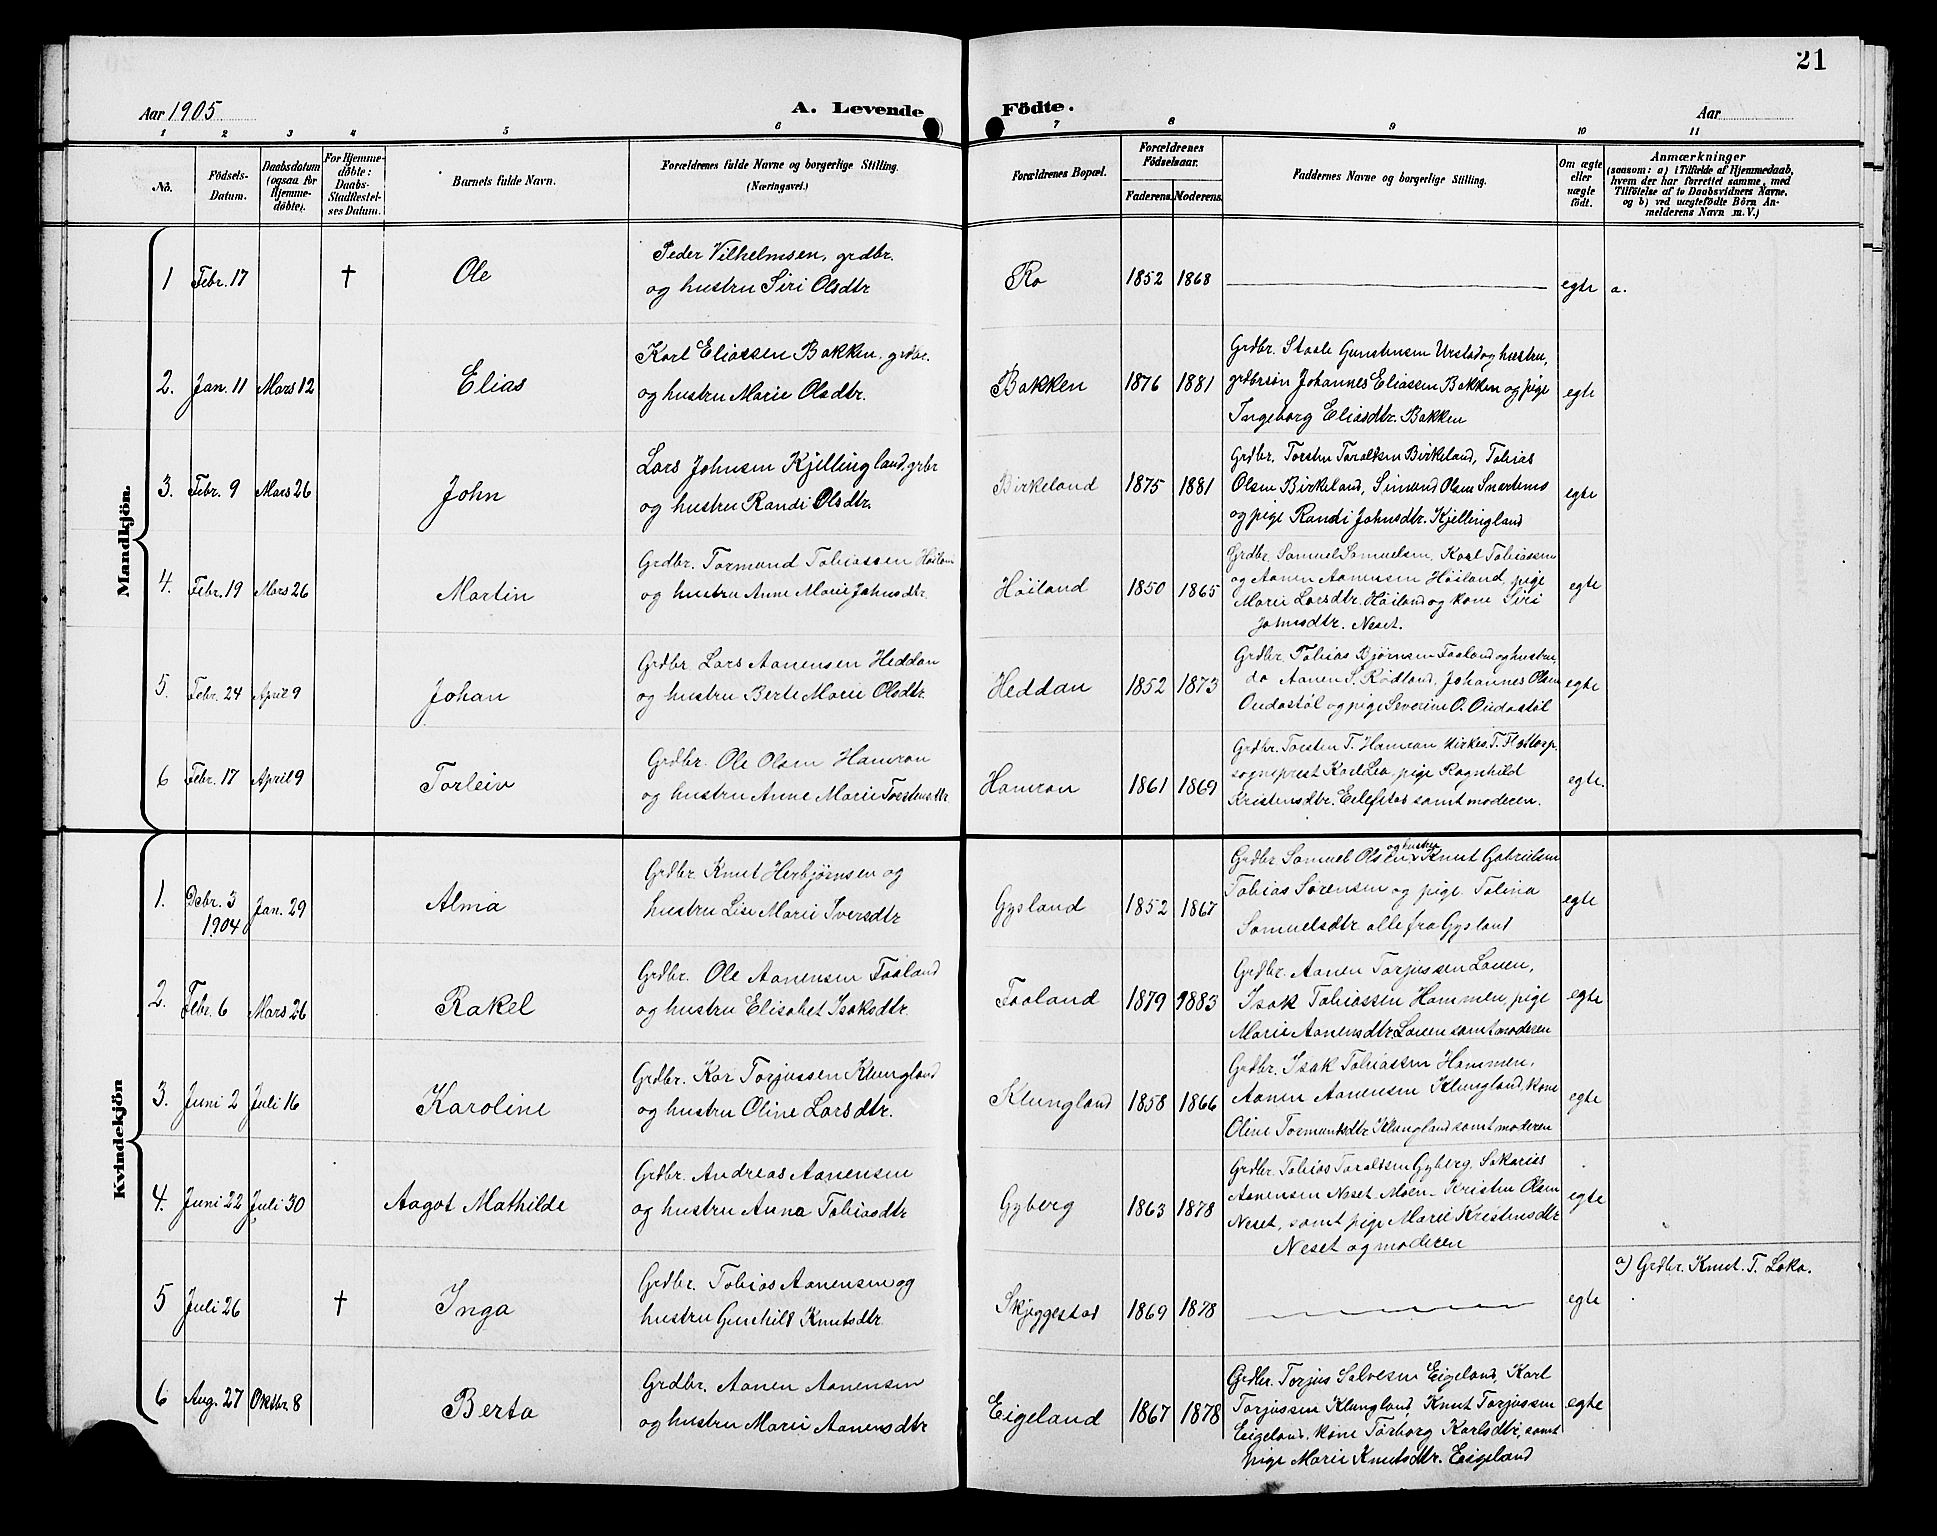 21
Aar 1905
A. Levende Födte.
Aar
1 2 3 4 5 6 7 8 9 10 11
No.
Födsels-Datum.
Daabsdatum (ogsaa for Hjemme-döbte).
For Hjemme-döbte: Daabs-Stadfæstel-ses Datum.
Barnets fulde Navn.
Forældrenes fulde Navne og borgerlige Stilling. (Næringsvei.)
Forældrenes Bopæl.
Forældrenes Födselsaar.
Faderens. Moderens.
Faddernes Navne og borgerlige Stilling.
Om ægte eller uægte födt.
Anmærkninger
(saasom: a) i Tilfælde af Hjemmedaab, hvem der har forrettet samme, med Tilföielse af to Daabsvidners Navne, og b) ved uægtefödte Börn An-melderens Navn m. V.)
Mandkjön.
1 Febr. 17 † Ole
Peder Vilhelmsen, grdbr.
og hustru Siri Olsdtr
Ro 1852 1868 egte a.
2. Jan. 11 Mars 12 Elias
Karl Eliassen Bakken, grdbr.
og hustru Marie Olsdtr.
Bakken 1876 1881
Grdbr. Staale Gunstensen Urstad og hustru,
grdbrsøn Johannes Eliassen Bakken og pige
Ingeborg Eliasdtr. Bakken
egte
3. Febr. 9 Mars 26 John
Lars Johnsen Kjellingland, grbr
og hustru Randi Olsdtr.
Birkeland 1875 1881
Grdbr. Torsten Taraldsen Birkeland, Tobias
Olsen Birkeland, Simund Olsen Snartemo
og pige Randi Johnsdtr. Kjellingland
egte
4. Febr. 19 Mars 26 Martin
Grdbr. Tormund Tobiassen Høiland
og hustru Anne Marie Johnsdtr.
Høiland 1850 1865
Grdbr. Samuel Samuelsen, Karl Tobiassen
og Aanen Aanensen Høiland, pige
Marie Larsdtr. Høiland og kone Siri
Johnsdtr. Neset.
egte
5. Febr. 24 April 9 Johan
Grdbr. Lars Aanensen Heddan
og hustru Berte Marie Olsdtr
Heddan 1852 1873
Grdbr. Tobias Bjørnsen Faaland og hustru,
do Aanen S. Rødland, Johannes Olsen
Oudastøl og pige Severine O. Oudastøl
egte
6 Febr. 17 April 9 Torleiv
Grdbr. Ole Olsen Hamran
og hustru Anne Marie Torstensdtr
Hamran 1861 1869
Grdbr. Torsten T. Hamran, kirkes. T. Flottorp,
sogneprest Karl Lea, pige Ragnhild
Kristensdtr. Eilefstad samt moderen.
egte.
Kvindekjön
1. Debr. 3 1904 Jan. 29 Alma
Grdbr. Knut Herbjørnsen og
hustru Lise Marie Iversdtr
Gysland 1852 1867
Grdbr. Samuel Olsen og hustru, Knut Gabrielsen
Tobias Sørensen og pige Talina
Samuelsdtr alle fra Gysland
egte
2. Febr. 6 Mars 26 Rakel
Grdbr. Ole Aanensen Faaland
og hustru Elisabet Isaksdtr.
Faaland 1879 1883
Grdbr. Aanen Torjussen Lauen,
Isak Tobiassen Hammen, pige
Marie Aanensdtr. Lauen samt moderen
egte
3. Juni 2 Juli 16 Karoline
Grdbr. Kar Torjussen Klungland
og hustru Oline Larsdtr.
Klungland 1858 1866
Grdbr. Isak Tobiassen Hammen,
Aanen Aanensen Klungland, kone
Oline Tormundsdtr. Klungland samt moderen
egte
4. Juni 22 Juli 30 Aagot Mathilde
Grdbr. Andreas Aanensen
og hustru Anna Tobiasdtr
Gyberg 1863 1878
Grdbr. Tobias Taraldsen Gyberg, Sakarias
Aanensen Neset-Moen - Kristen Olsen
Neset, samt pige Marie Kristensdtr
Neset og moderen
egte
5 Juli 26 † Inga
Grdbr. Tobias Aanensen og
hustru Gunhild Knutsdtr.
Skjeggestad 1869 1878 egte
a) Grdbr. Knut. T. Loka.
6 Aug. 27 Oktbr. 8 Berta
Grdbr. Aanen Aanensen
og hustru Marie Aanensdtr
Eigeland 1867 1878
Grdbr. Torjus Salvesen Eigeland, Karl
Torjussen Klungland, Knut Torjussen
Eigeland, kone Torborg Karlsdtr, samt
pige Marie Knutsdtr. Eigeland
egte